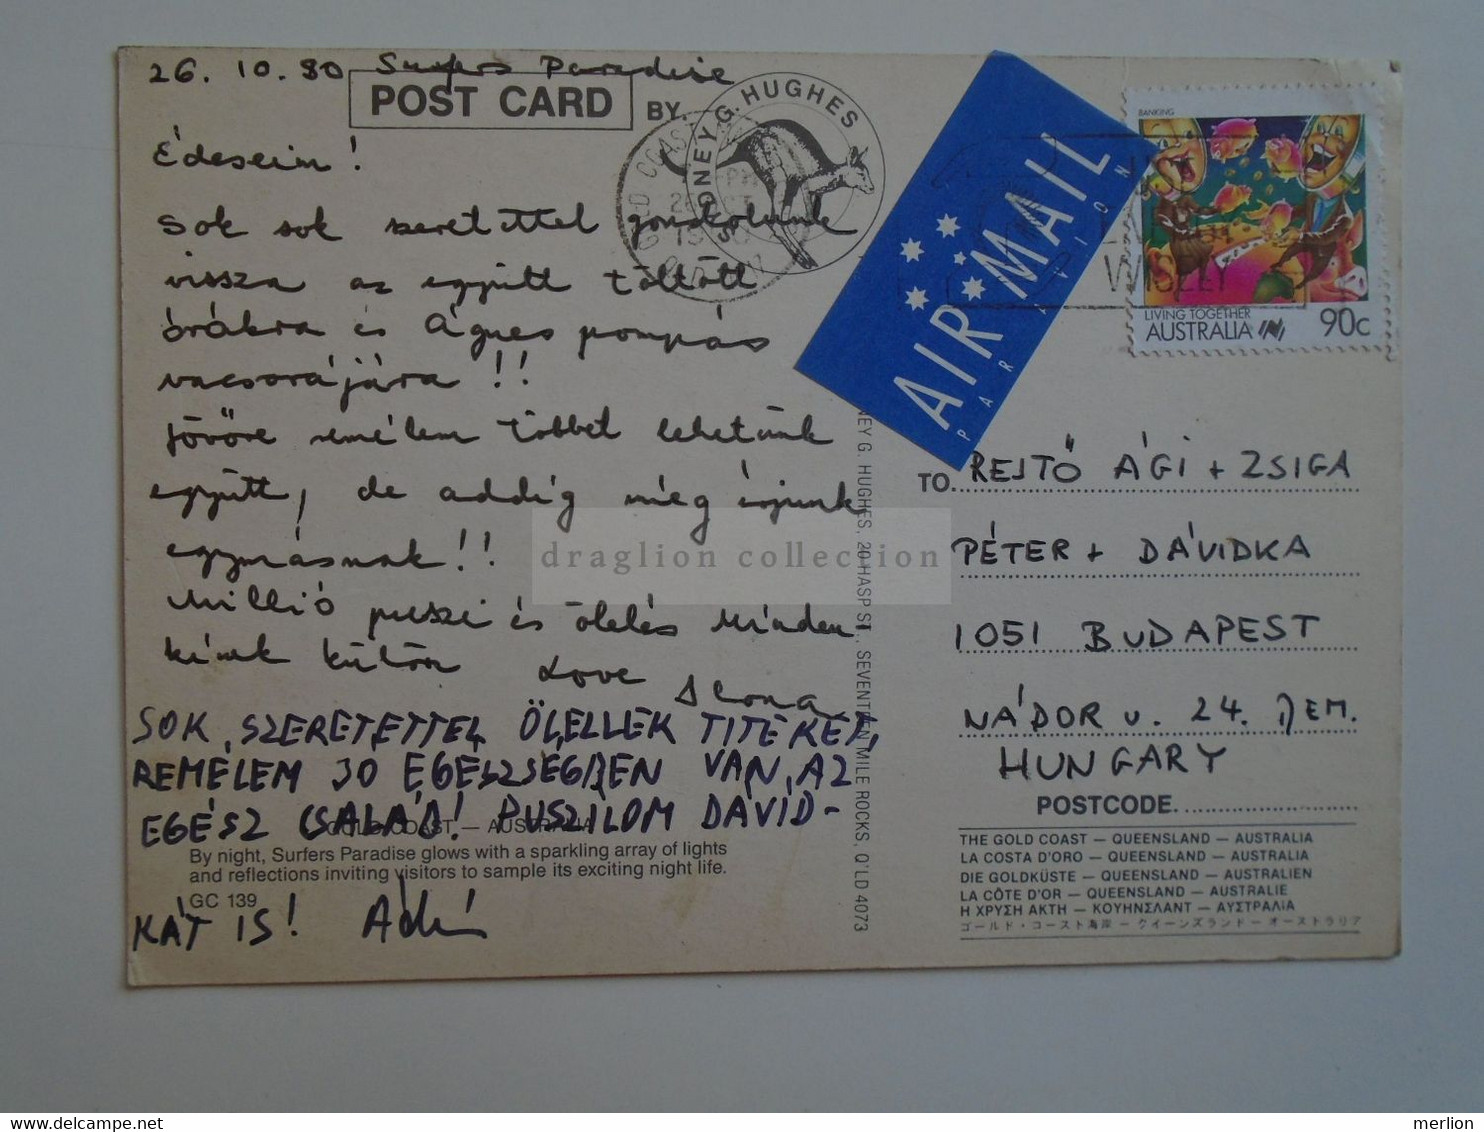 26. 10. 90 Surfers Paradise
POST CARD
BY SIDNEY G. HUGHES
Édeseim!
Sok sok szeretettel gondolunk
vissza az együtt töltött
órákra és Ágnes pompás
vacsorájára!!
Jövőre remélem többet lehetünk
együtt, de addig még írjunk
egymásnak!!
Millió puszi és ölelés minden-
kinek külön Love Ilona
SOK SZERETETTEL ÖLELLEK TITEKET,
REMÉLEM JO EGÉSZSÉGBEN VAN AZ
EGÉSZ CSALÁD! PUSZILOM DÁVID-
KÁT IS!
GOLD COAST — AUSTRALIA
By night, Surfers Paradise glows with a sparkling array of lights
and reflections inviting visitors to sample its exciting night life.
GC 139
NEY G. HUGHES, 20 HASP ST., SEVENTEEN MILE ROCKS, Q'LD 4073
AIR MAIL
PAR AVION
BANKING
LIVING TOGETHER
AUSTRALIA 90c
WISELY
TO. REJTŐ ÁGI + ZSIGA
PÉTER + DÁVIDKA
1051 BUDAPEST
NÁDOR u. 24. I. EM.
HUNGARY
POSTCODE
THE GOLD COAST — QUEENSLAND — AUSTRALIA
LA COSTA D'ORO — QUEENSLAND — AUSTRALIA
DIE GOLDKÜSTE — QUEENSLAND — AUSTRALIEN
LA CÔTE D'OR — QUEENSLAND — AUSTRALIE
Η ΧΡΥΣΗ ΑΚΤΗ — ΚΟΥΗΝΣΛΑΝΤ — ΑΥΣΤΡΑΛΙΑ
ゴールド・コースト海岸 — クイーンズランド — オーストラリア
draglion collection
merlion